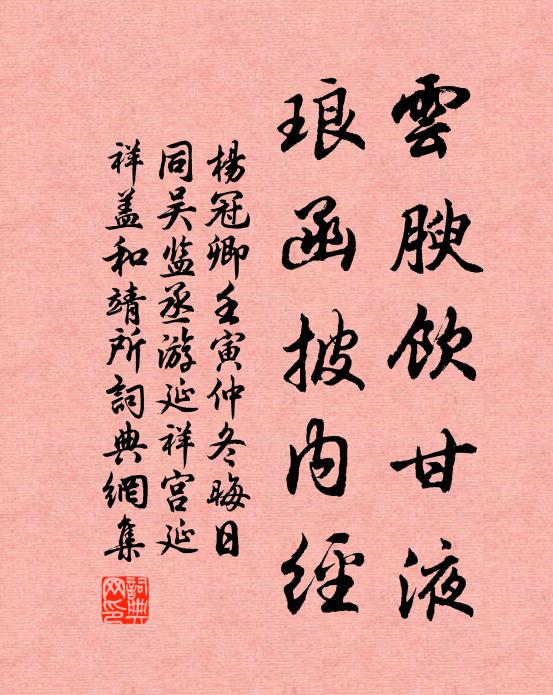 雲腴飲甘液
琅函披内經
楊冠卿壬寅仲冬晦日
同吴监丞游延祥宫延
祥盖和靖所詞典網集
詞典网印